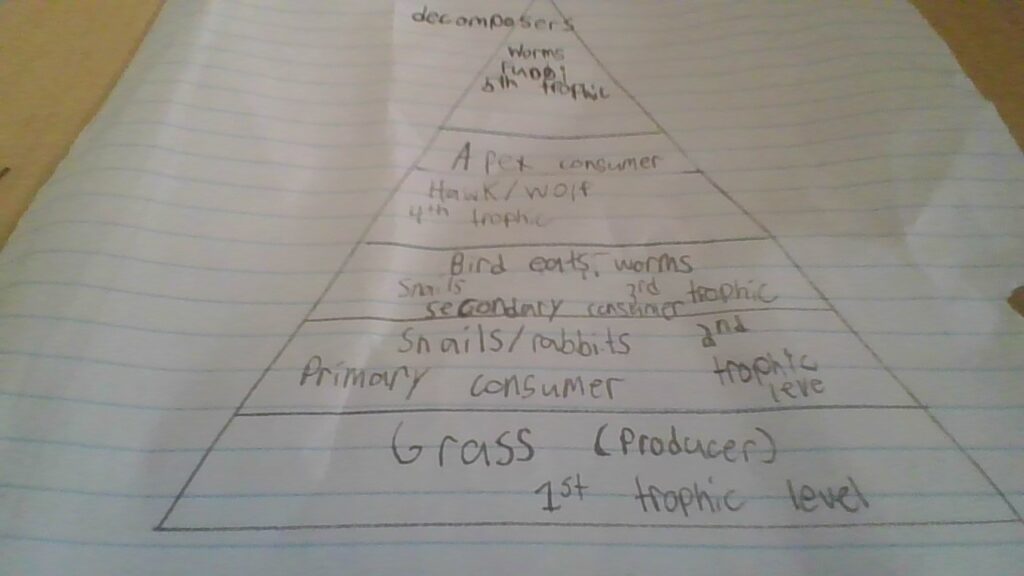 decomposers
worms
fungi
5th trophic
Apex consumer
Hawk/Wolf
4th trophic
Bird eats, worms
Snails 3rd trophic
secondary consumer
Snails/rabbits 2nd
trophic
Primary consumer leve
Grass (Producer)
1st trophic level